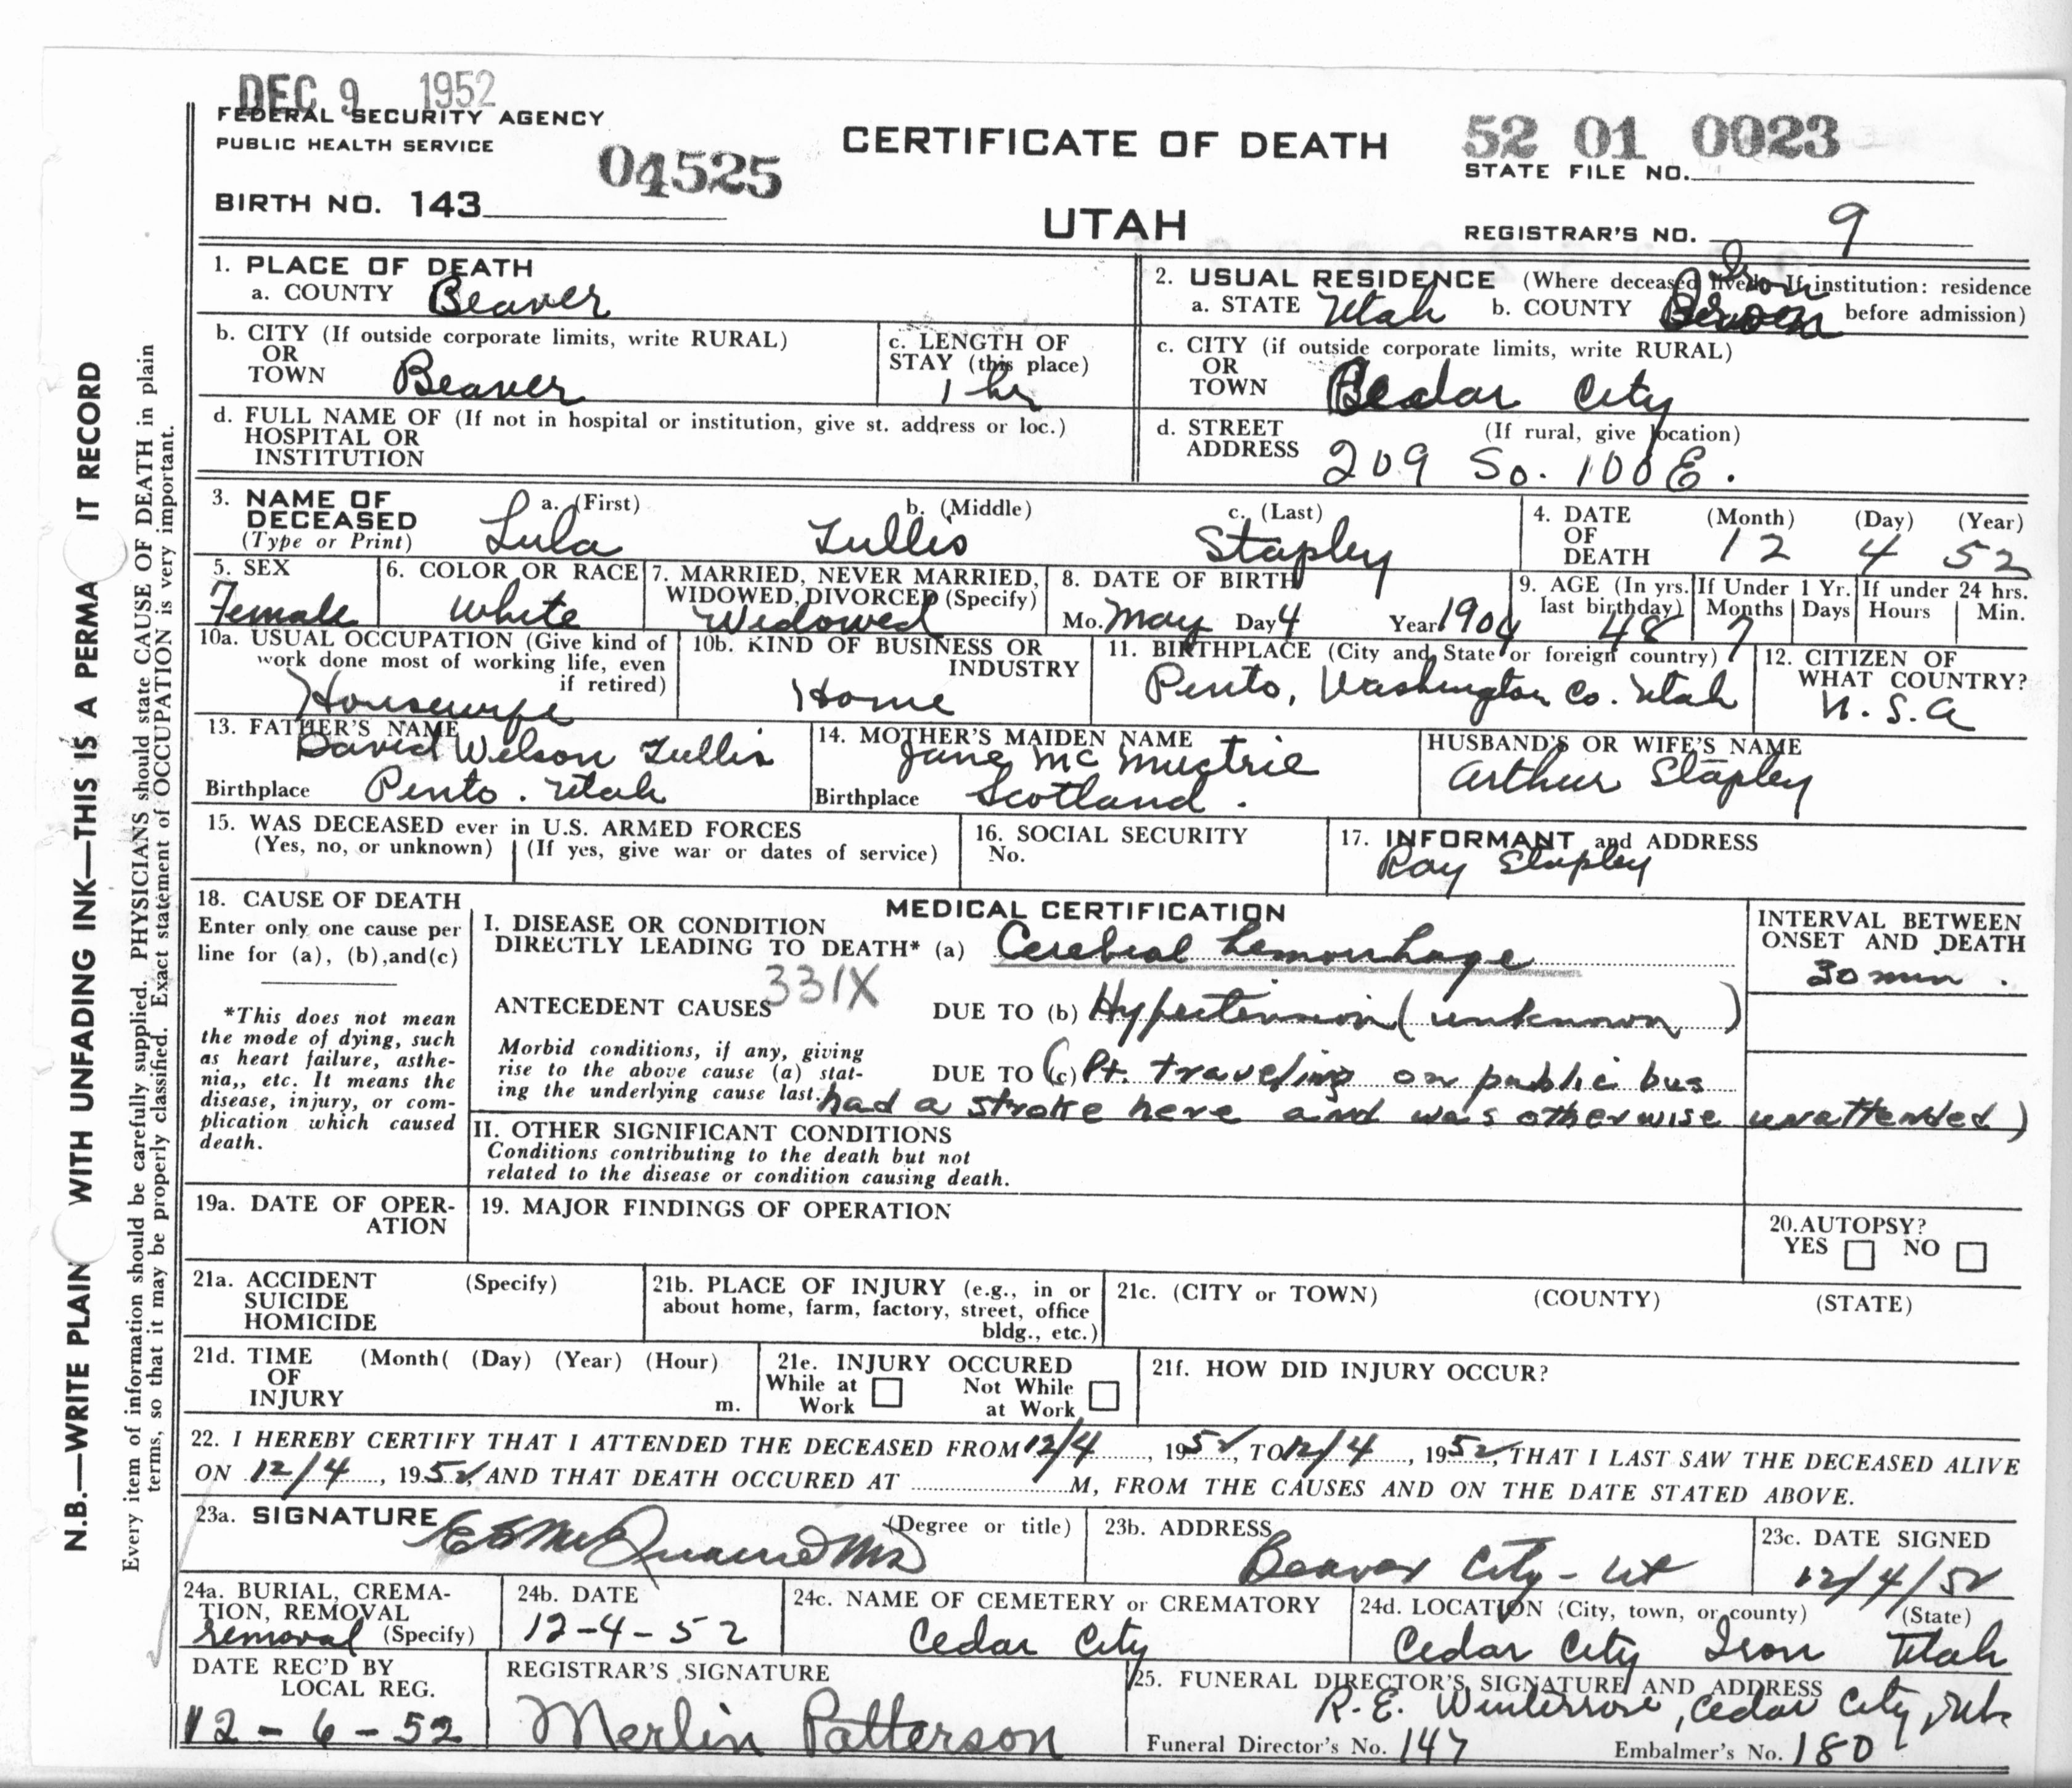 DEC 9 1952
FEDERAL SECURITY AGENCY
PUBLIC HEALTH SERVICE
04525
BIRTH NO. 143
CERTIFICATE OF DEATH
UTAH
52 01 0023
STATE FILE NO.
REGISTRAR'S NO. 9
1. PLACE OF DEATH
a. COUNTY Beaver
2. USUAL RESIDENCE (Where deceased lived. If institution: residence
a. STATE Utah b. COUNTY Iron before admission)
b. CITY (If outside corporate limits, write RURAL)
OR
TOWN Beaver
c. LENGTH OF
STAY (this place)
1 hr
c. CITY (if outside corporate limits, write RURAL)
OR
TOWN Cedar City
d. FULL NAME OF (If not in hospital or institution, give st. address or loc.)
HOSPITAL OR
INSTITUTION
d. STREET (If rural, give location)
ADDRESS 209 So. 100 E.
3. NAME OF
DECEASED
(Type or Print)
a. (First) b. (Middle) c. (Last)
Lula Tullis Stapley
4. DATE (Month) (Day) (Year)
OF
DEATH 12 4 52
5. SEX
Female
6. COLOR OR RACE
White
7. MARRIED, NEVER MARRIED,
WIDOWED, DIVORCED (Specify)
Widowed
8. DATE OF BIRTH
Mo. May Day 4 Year 1904
9. AGE (In yrs.
last birthday)
48
If Under 1 Yr.
Months Days
7
If under 24 hrs.
Hours Min.
10a. USUAL OCCUPATION (Give kind of
work done most of working life, even
if retired)
Housewife
10b. KIND OF BUSINESS OR
INDUSTRY
Home
11. BIRTHPLACE (City and State or foreign country)
Pinto, Washington Co. Utah
12. CITIZEN OF
WHAT COUNTRY?
U.S.A
13. FATHER'S NAME
David Wilson Tullis
Birthplace Pinto. Utah
14. MOTHER'S MAIDEN NAME
Jane Mc Muctrie
Birthplace Scotland.
HUSBAND'S OR WIFE'S NAME
Arthur Stapley
15. WAS DECEASED ever in U.S. ARMED FORCES
(Yes, no, or unknown) (If yes, give war or dates of service)
16. SOCIAL SECURITY
No.
17. INFORMANT and ADDRESS
Ray Stapley
18. CAUSE OF DEATH
Enter only one cause per
line for (a), (b),and(c)
*This does not mean
the mode of dying, such
as heart failure, asthe-
nia,, etc. It means the
disease, injury, or com-
plication which caused
death.
MEDICAL CERTIFICATION
I. DISEASE OR CONDITION
DIRECTLY LEADING TO DEATH* (a) Cerebral hemorrhage
331X
ANTECEDENT CAUSES DUE TO (b) Hypertension (unknown)
Morbid conditions, if any, giving
rise to the above cause (a) stat-
ing the underlying cause last.
DUE TO (c) (Pt. traveling on public bus
had a stroke here and was otherwise unattended)
INTERVAL BETWEEN
ONSET AND DEATH
30 min.
II. OTHER SIGNIFICANT CONDITIONS
Conditions contributing to the death but not
related to the disease or condition causing death.
19a. DATE OF OPER-
ATION
19. MAJOR FINDINGS OF OPERATION
20.AUTOPSY?
YES NO
21a. ACCIDENT (Specify)
SUICIDE
HOMICIDE
21b. PLACE OF INJURY (e.g., in or
about home, farm, factory, street, office
bldg., etc.)
21c. (CITY or TOWN) (COUNTY) (STATE)
21d. TIME (Month( (Day) (Year) (Hour)
OF
INJURY m.
21e. INJURY OCCURED
While at Not While
Work at Work
21f. HOW DID INJURY OCCUR?
22. I HEREBY CERTIFY THAT I ATTENDED THE DECEASED FROM 12/4, 1952, TO 12/4, 1952, THAT I LAST SAW THE DECEASED ALIVE
ON 12/4, 1952, AND THAT DEATH OCCURED AT M, FROM THE CAUSES AND ON THE DATE STATED ABOVE.
23a. SIGNATURE (Degree or title)
MD
23b. ADDRESS
Beaver City - Ut
23c. DATE SIGNED
12/4/52
24a. BURIAL, CREMA-
TION, REMOVAL
removal (Specify)
24b. DATE
12-4-52
24c. NAME OF CEMETERY or CREMATORY
Cedar City
24d. LOCATION (City, town, or county) (State)
Cedar City Iron Utah
DATE REC'D BY
LOCAL REG.
12-6-52
REGISTRAR'S SIGNATURE
Merlin Patterson
25. FUNERAL DIRECTOR'S SIGNATURE AND ADDRESS
R. E. Winterrose, Cedar City, Utah
Funeral Director's No. 147 Embalmer's No. 180
N.B.—WRITE PLAIN WITH UNFADING INK—THIS IS A PERMA IT RECORD
Every item of information should be carefully supplied. PHYSICIANS should state CAUSE OF DEATH in plain
terms, so that it may be properly classified. Exact statement of OCCUPATION is very important.